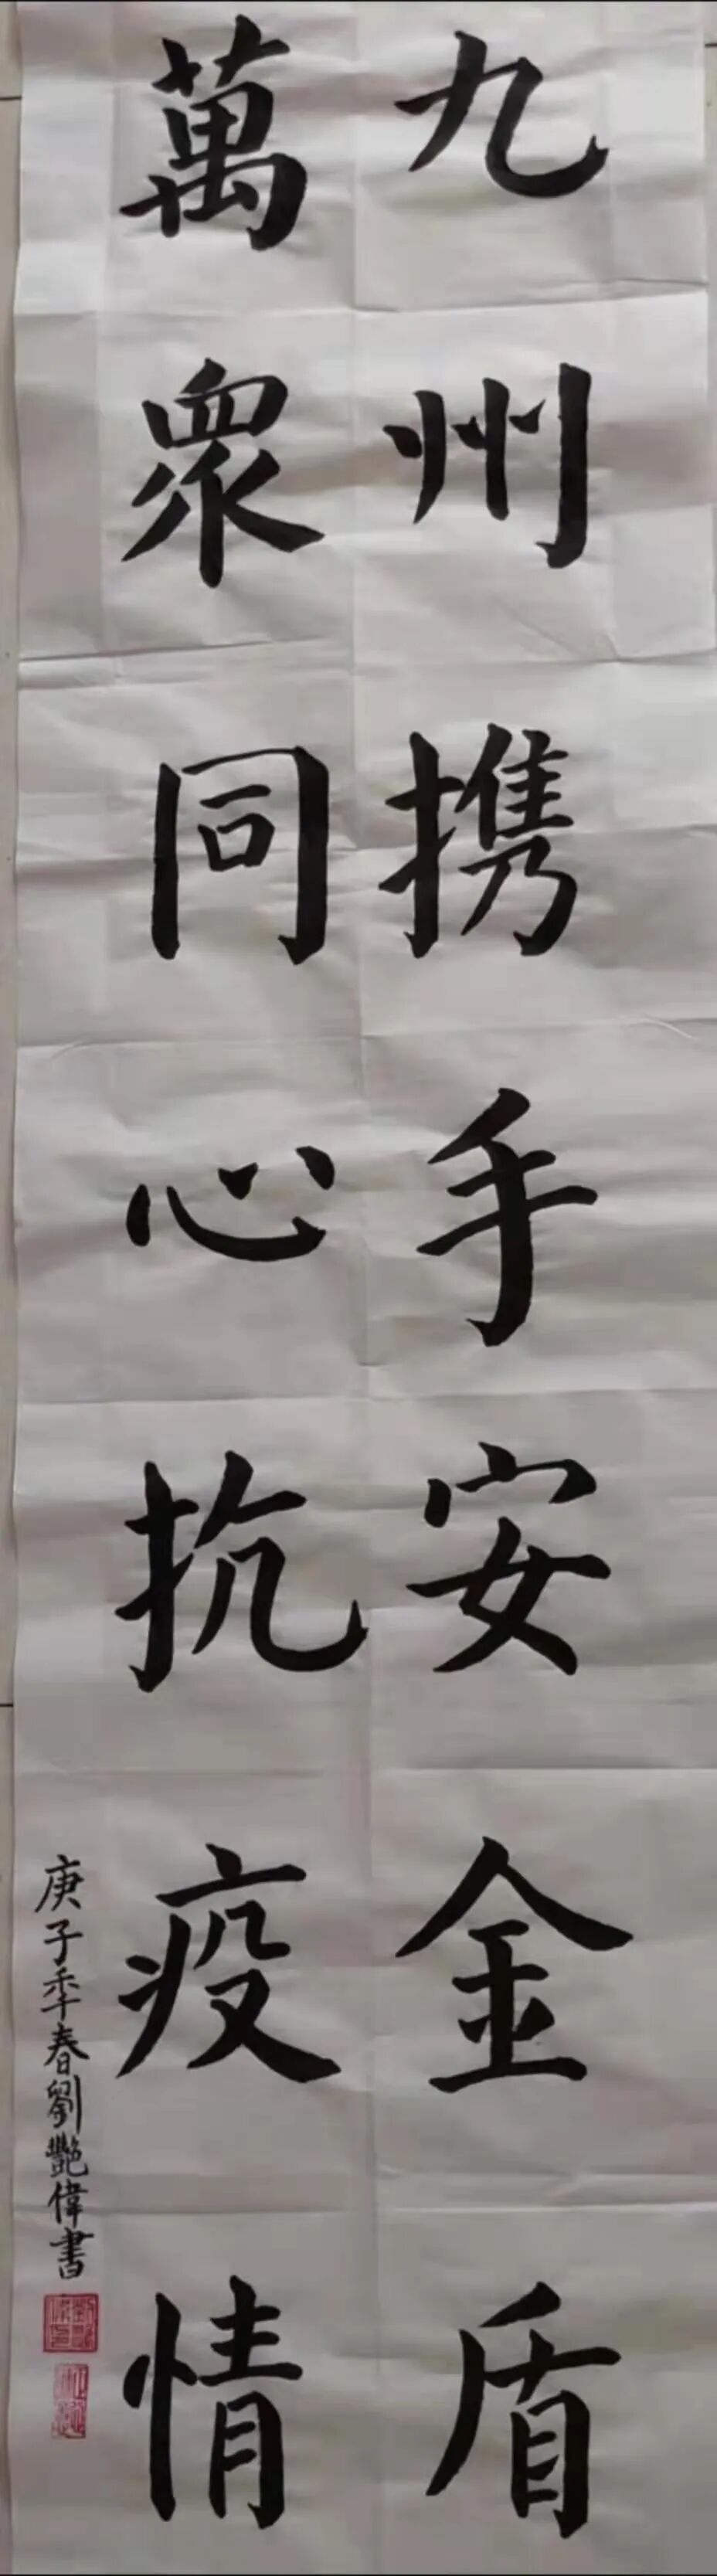 九州携手安金盾
萬眾同心抗疫情
庚子季春劉艷偉書